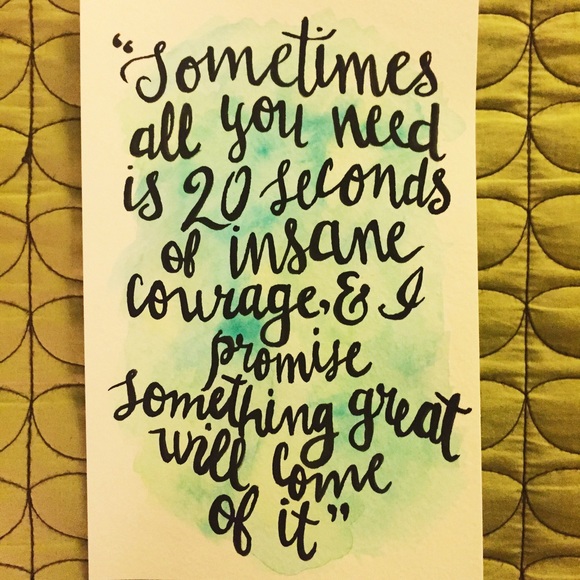 “Sometimes
all you need
is 20 seconds
of insane
courage, & I
promise
something great
will come
of it”